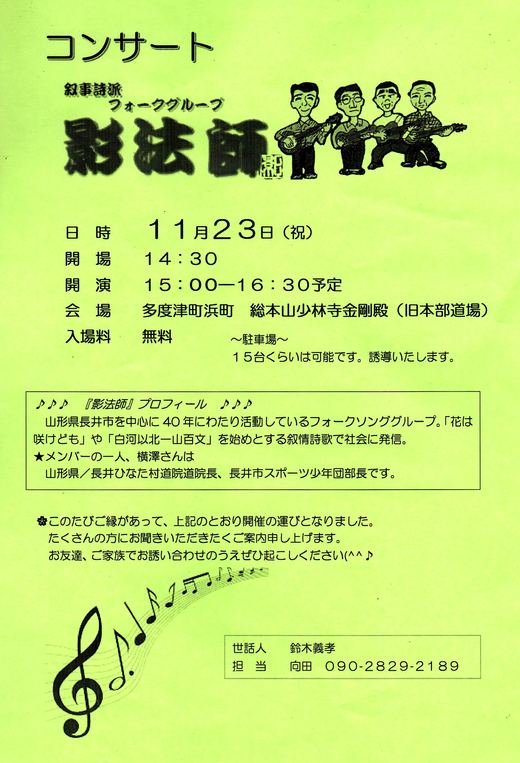 コンサート
叙事詩派
フォークグループ
影法師
日　時　１１月２３日（祝）
開　場　１４：３０
開　演　１５：００―１６：３０予定
会　場　多度津町浜町　総本山少林寺金剛殿（旧本部道場）
入場料　無料
～駐車場～
１５台くらいは可能です。誘導いたします。
♪♪♪　『影法師』プロフィール　♪♪♪
山形県長井市を中心に 40 年にわたり活動しているフォークソンググループ。「花は
咲けども」や「白河以北一山百文」を始めとする叙情詩歌で社会に発信。
★メンバーの一人、横澤さんは
山形県／長井ひなた村道院道院長、長井市スポーツ少年団部長です。
✿このたびご縁があって、上記のとおり開催の運びとなりました。
たくさんの方にお聞きいただきたくご案内申し上げます。
お友達、ご家族でお誘い合わせのうえぜひ起こしください(^^♪
世話人　鈴木義孝
担　当　向田　０９０-２８２９-２１８９